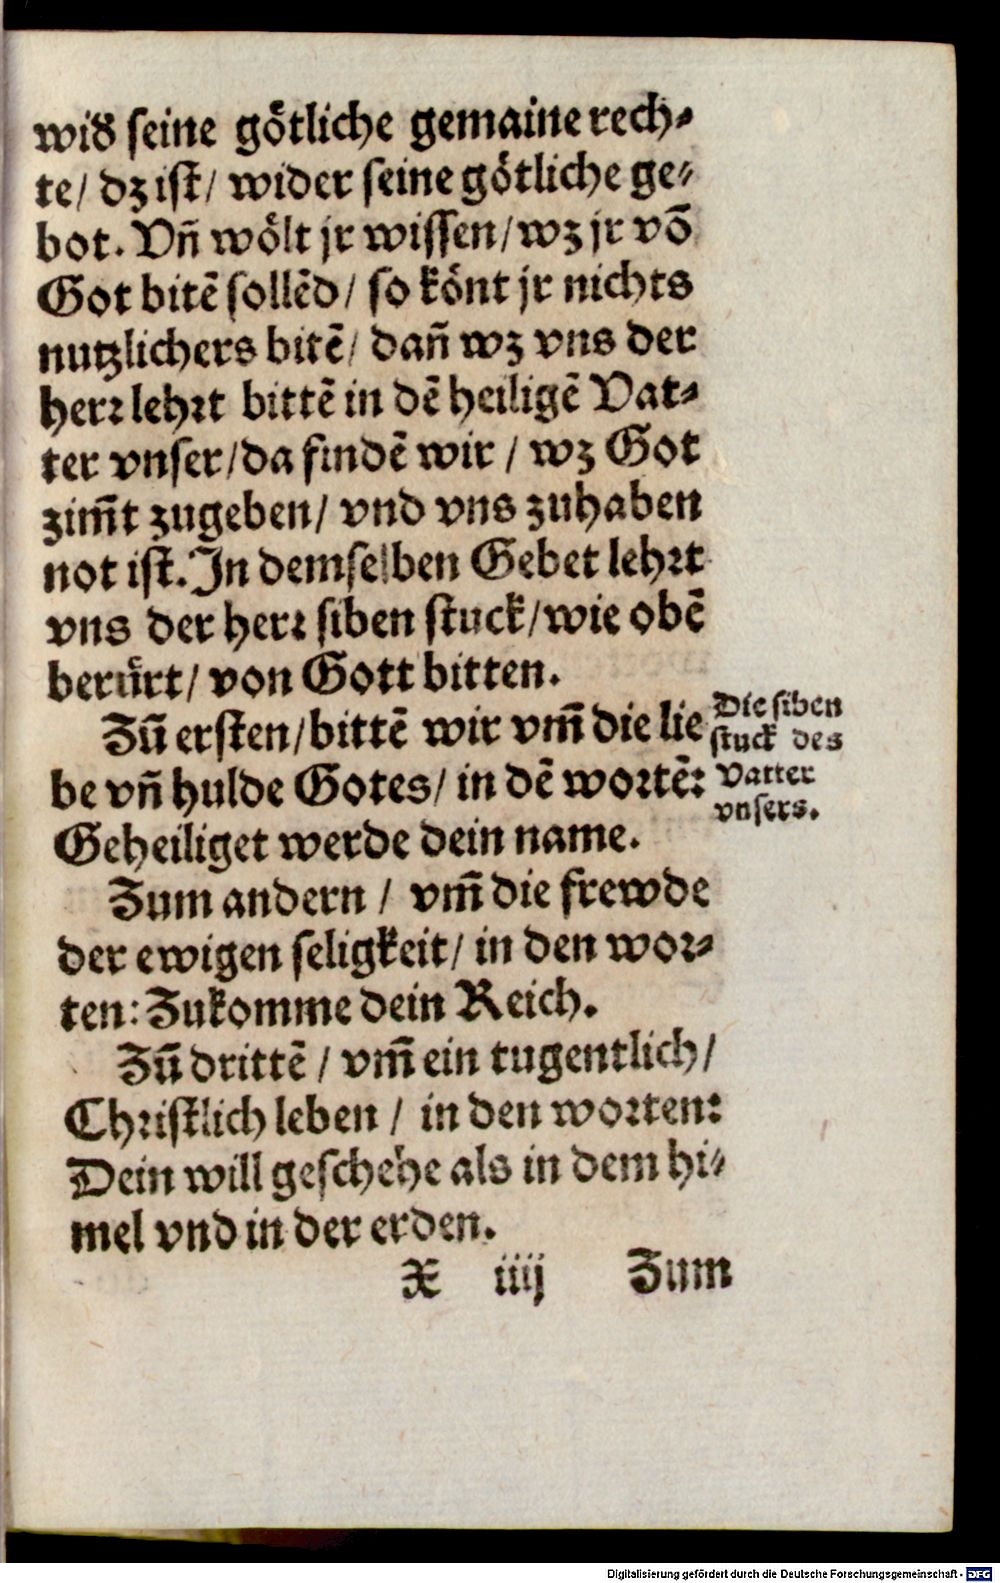 wiď seine götliche gemaine rech-
te/ dz ist/ wider seine götliche ge-
bot. Vñ wölt jr wissen/ wz jr võ
Got bitẽ sollẽd/ so könt jr nichts
nutzlichers bitẽ/ dañ wz vns der
herr lehrt bittẽ in dẽ heiligẽ Vat-
ter vnser/ da findẽ wir / wz Got
zim̃t zugeben/ vnd vns zuhaben
not ist. In demselben Gebet lehrt
vns der herr siben stuck/ wie obẽ
berürt/ von Gott bitten.
Zũ ersten/ bittẽ wir vm̃ die lie
be vñ hulde Gotes/ in dẽ wortẽ:
Geheiliget werde dein name.
Die siben
stuck des
Vatter
vnsers.
Zum andern / vm̃ die frewde
der ewigen seligkeit/ in den wor-
ten: Zukomme dein Reich.
Zũ drittẽ / vm̃ ein tugentlich/
Christlich leben / in den worten:
Dein will geschehe als in dem hi-
mel vnd in der erden.
X iiij Zum
Digitalisierung gefördert durch die Deutsche Forschungsgemeinschaft - DFG